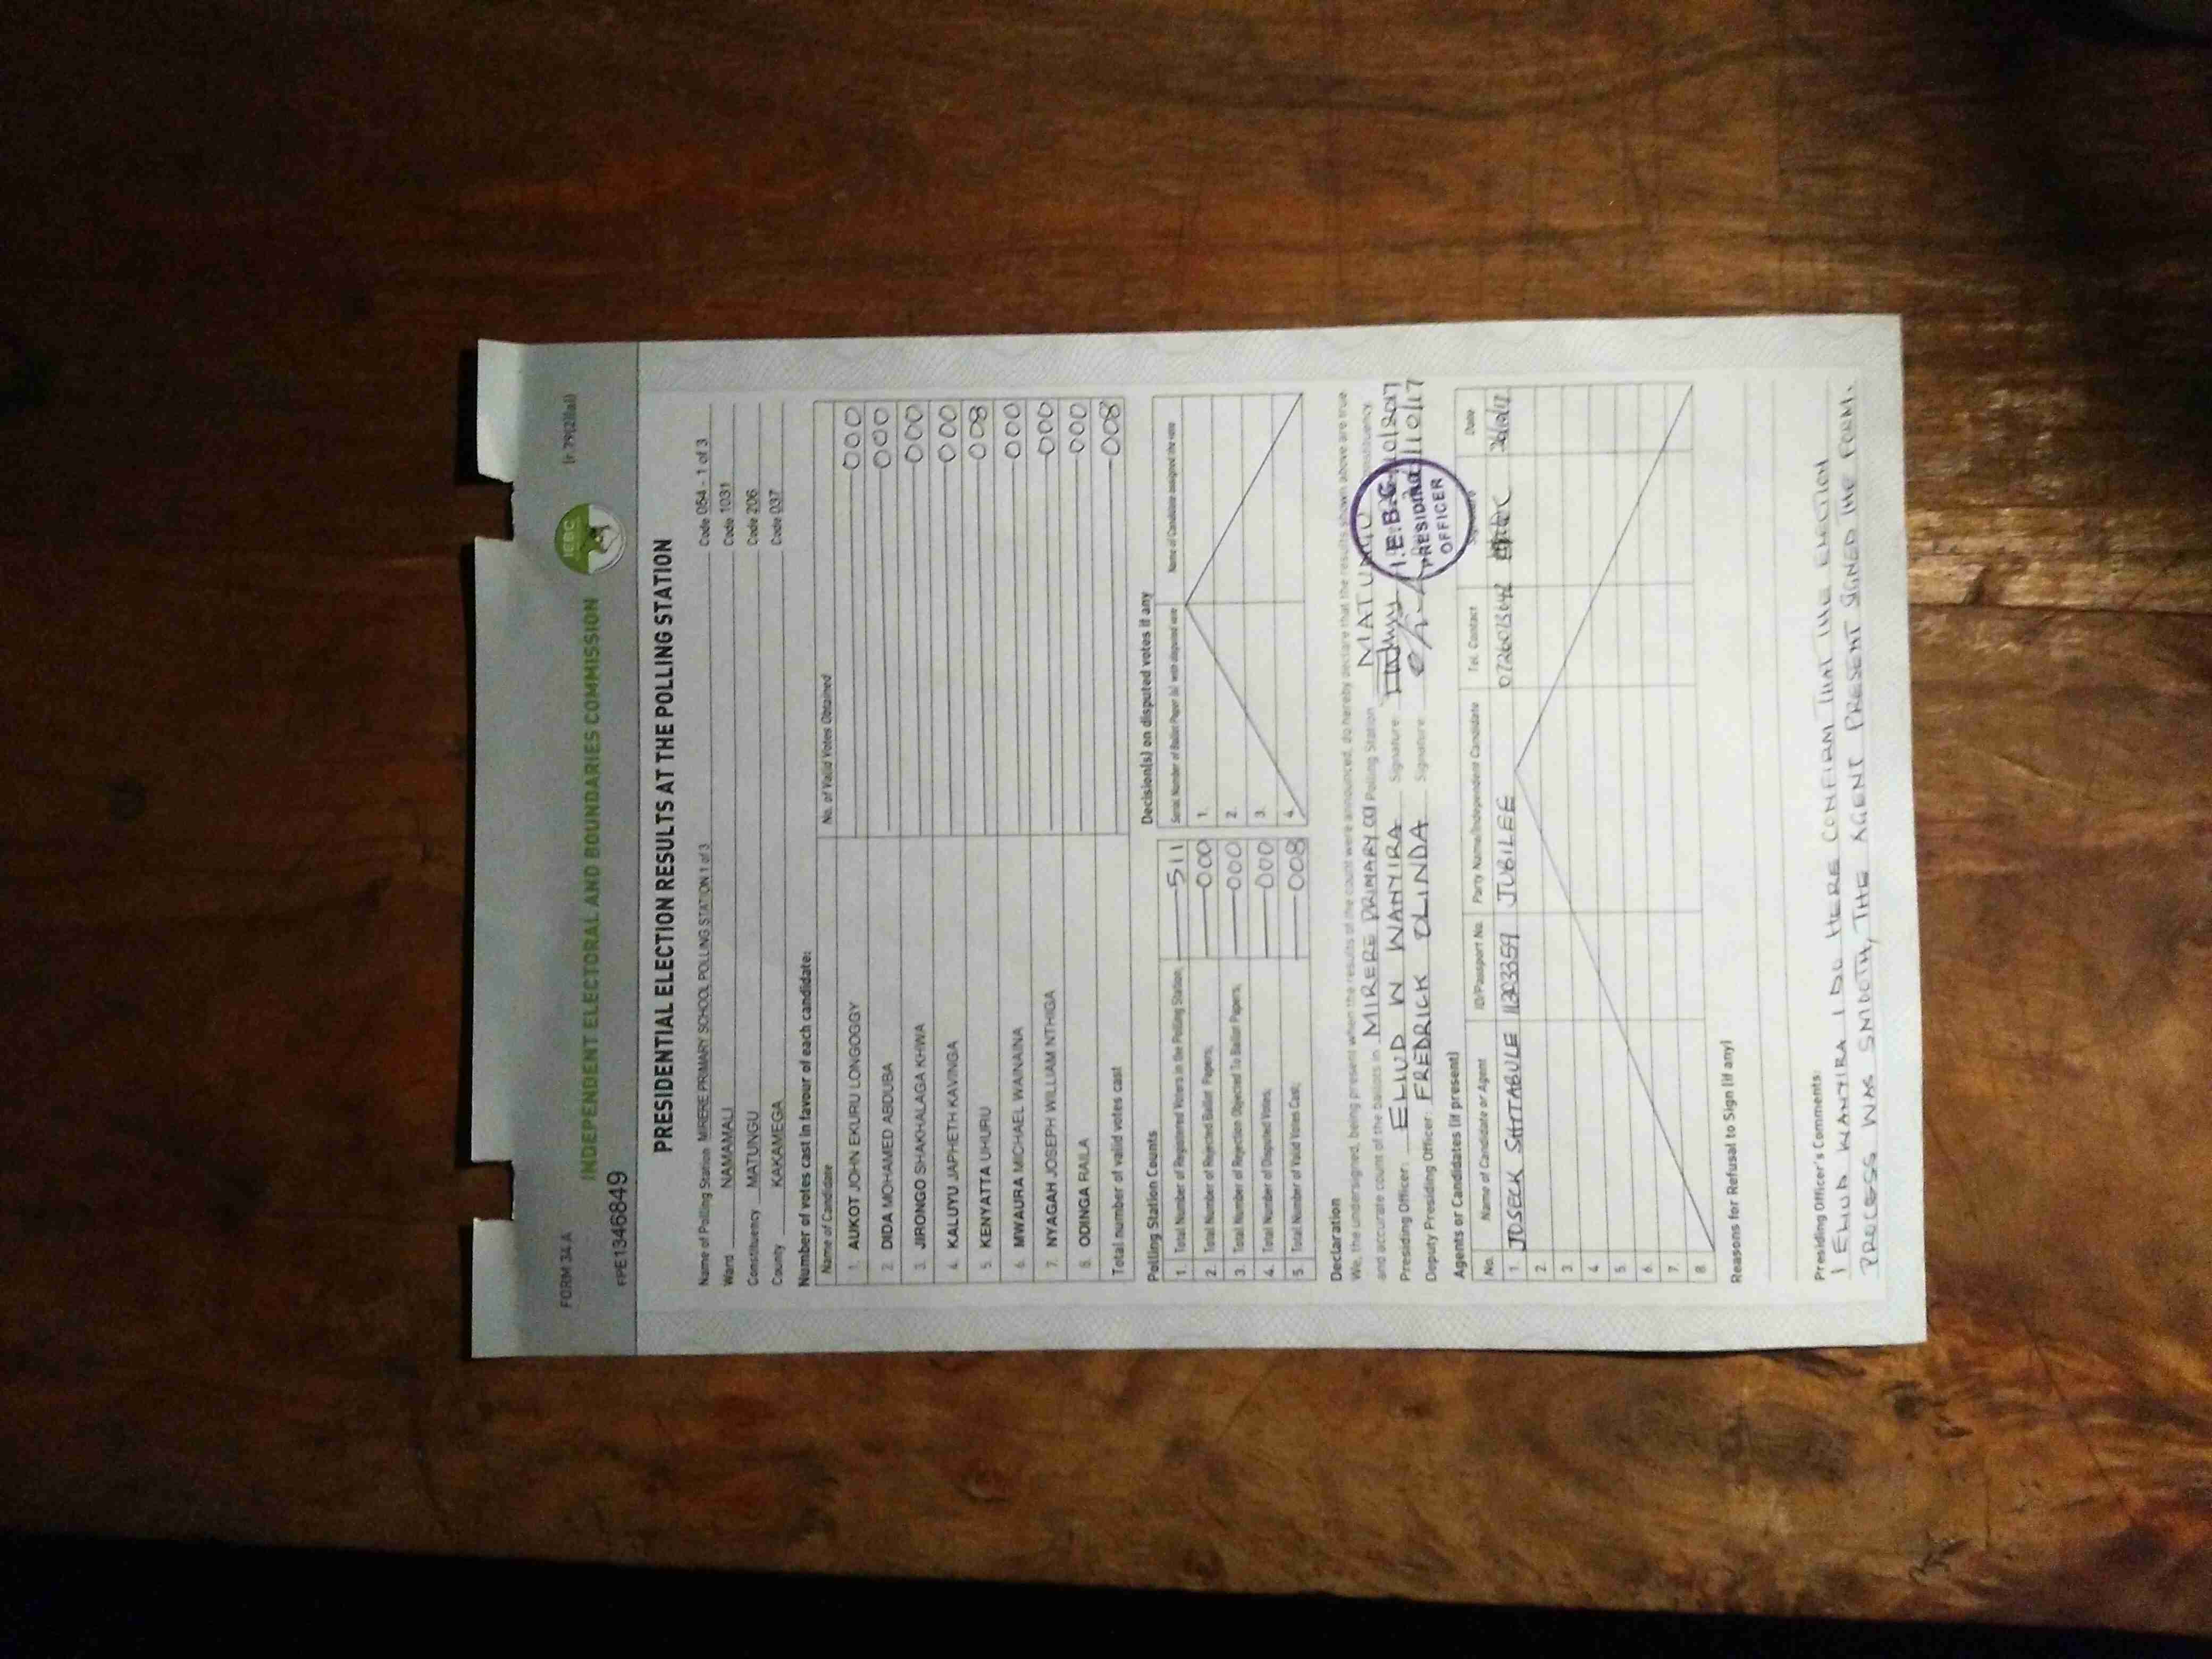 FORM 34 A
(r 79(2)(a))
INDEPENDENT ELECTORAL AND BOUNDARIES COMMISSION
IEBC
FPE1346849
PRESIDENTIAL ELECTION RESULTS AT THE POLLING STATION
Name of Polling Station MIRERE PRIMARY SCHOOL POLLING STATION 1 of 3 Code 064 - 1 of 3
Ward NAMAMALI Code 1031
Constituency MATUNGU Code 206
County KAKAMEGA Code 037
Number of votes cast in favour of each candidate:
Name of Candidate No. of Valid Votes Obtained
1. AUKOT JOHN EKURU LONGOGGY 000
2. DIDA MOHAMED ABDUBA 000
3. JIRONGO SHAKHALAGA KHWA 000
4. KALUYU JAPHETH KAVINGA 000
5. KENYATTA UHURU 008
6. MWAURA MICHAEL WAINAINA 000
7. NYAGAH JOSEPH WILLIAM NTHIGA 000
8. ODINGA RAILA 000
Total number of valid votes cast 008
Polling Station Counts
1. Total Number of Registered Voters in the Polling Station; 511
2. Total Number of Rejected Ballot Papers; 000
3. Total Number of Rejection Objected To Ballot Papers; 000
4. Total Number of Disputed Votes; 000
5. Total Number of Valid Votes Cast; 008
Decision(s) on disputed votes if any
Serial Number of Ballot Paper (s) with disputed vote Name of Candidate assigned the vote
1.
2.
3.
4.
Declaration
We, the undersigned, being present when the results of the count were announced, do hereby declare that the results shown above are true
and accurate count of the ballots in MIRERE PRIMARY Polling Station MATUNGU Constituency.
Presiding Officer: ELIUD W WANYIRA Signature
Deputy Presiding Officer: FREDRICK OLINDA Signature
I.E.B.C
PRESIDING
OFFICER
Agents or Candidates (if present)
No. Name of Candidate or Agent ID/Passport No. Party Name/Independent Candidate Tel. Contact Signature Date
1. JOSECK SHITABULE JUBILEE
2.
3.
4.
5.
6.
7.
8.
Reasons for Refusal to Sign (if any)
Presiding Officer's Comments:
I ELIUD WANYIRA I DO HERE CONFIRM THAT THE ELECTION
PROCESS WAS SMOOTH, THE AGENT PRESENT SIGNED THE FORM.